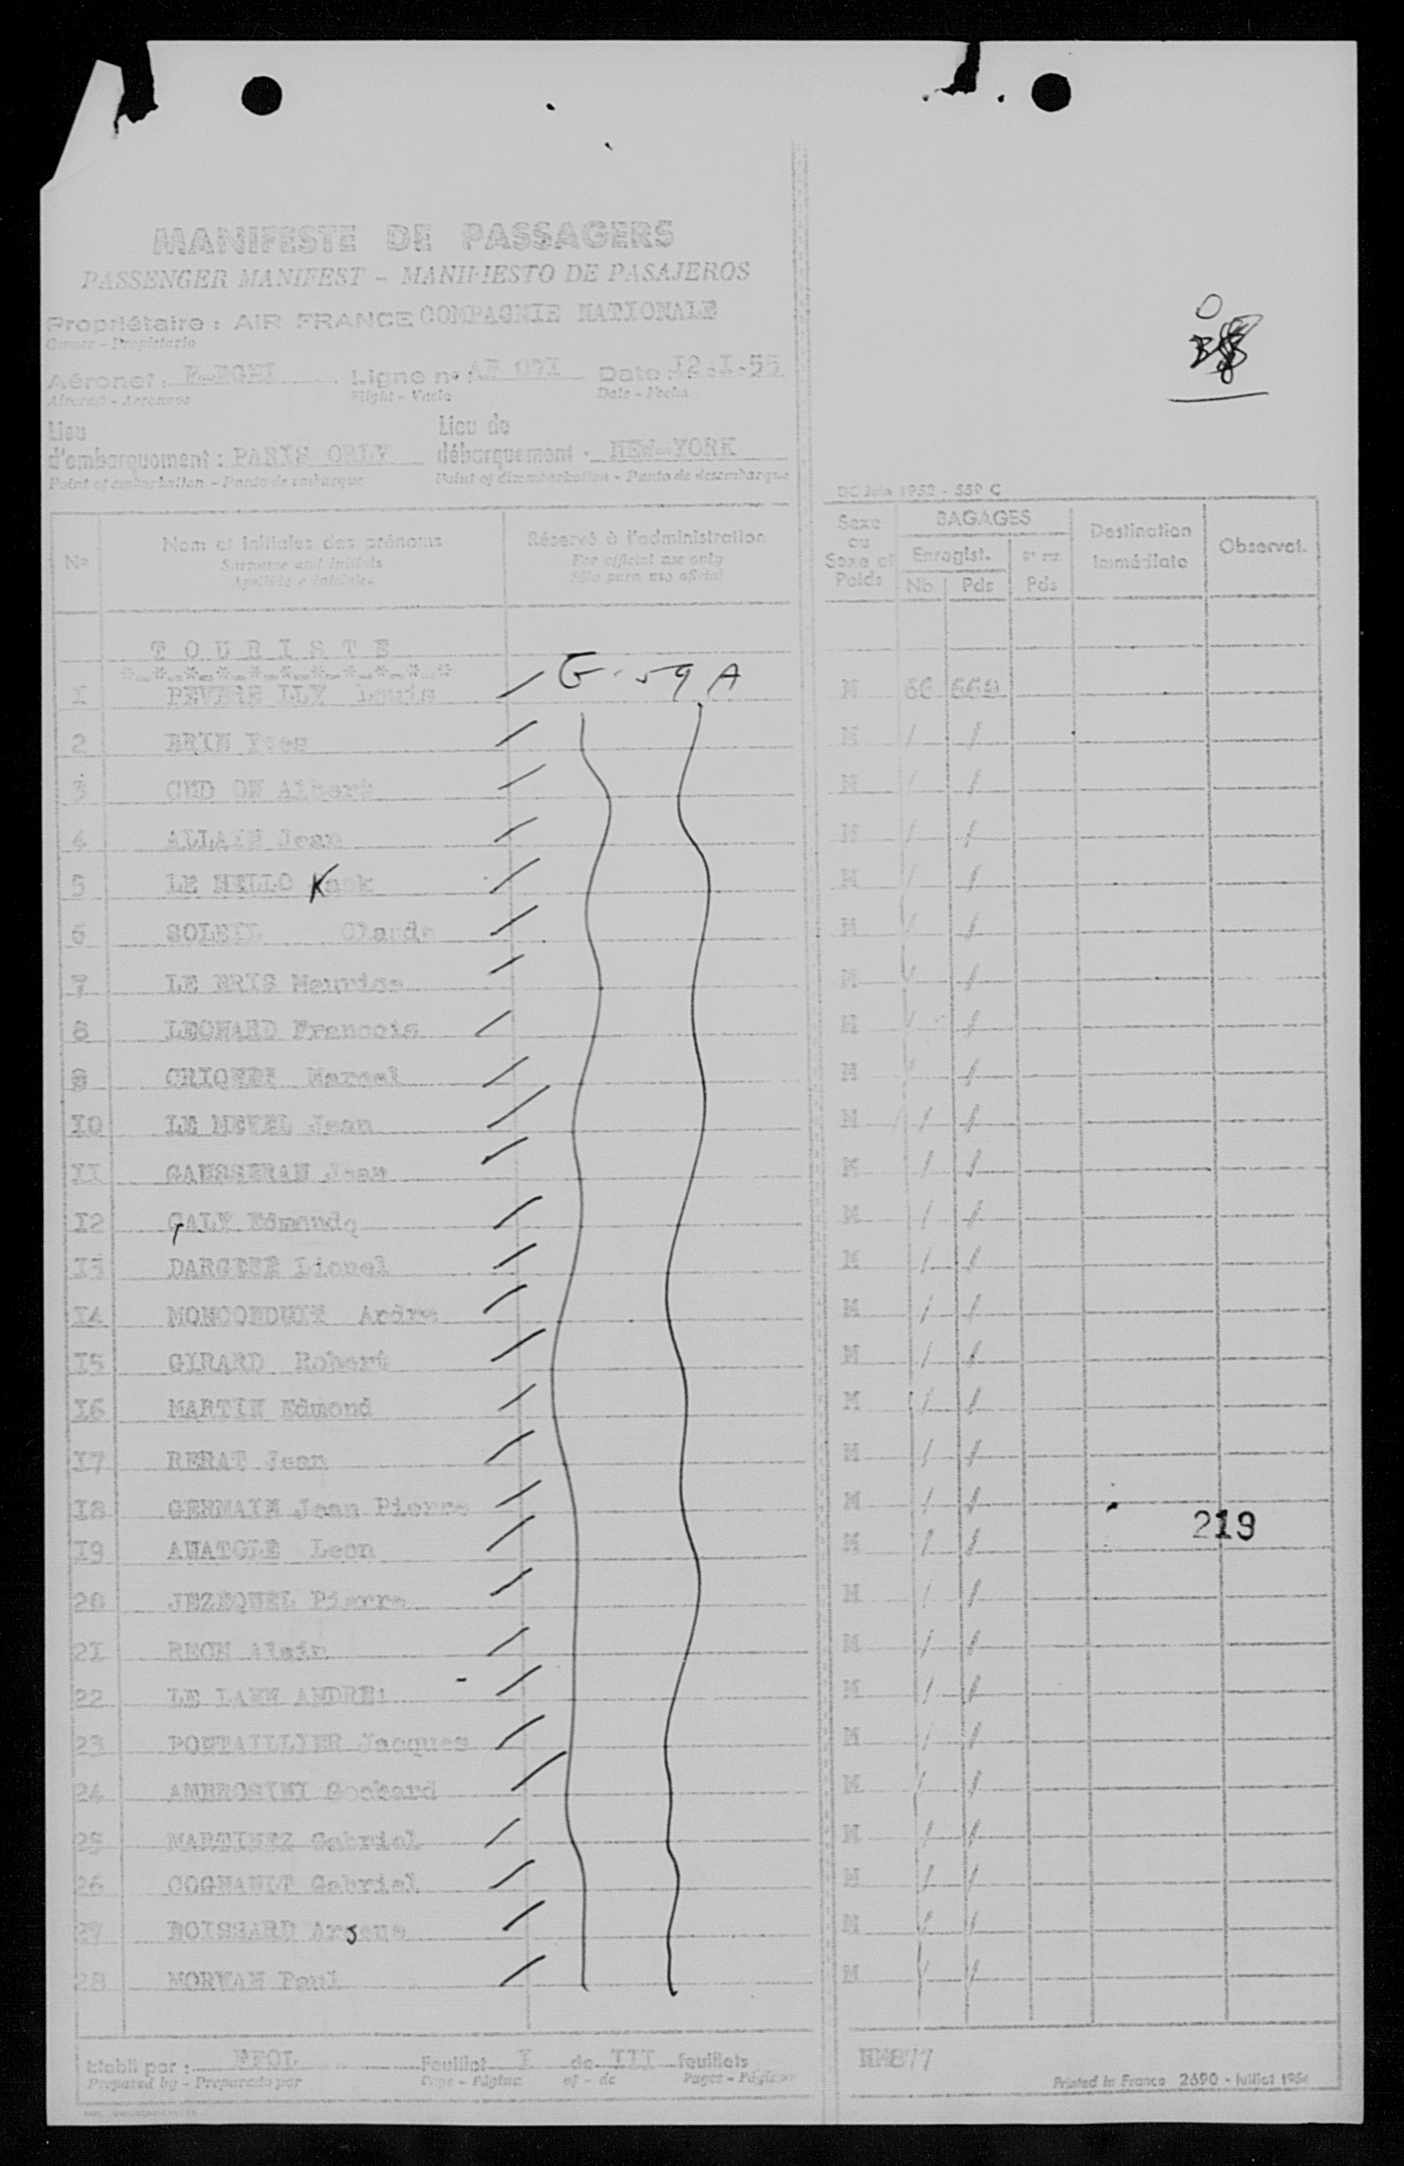 MANIFESTE DE PASSAGERS
PASSENGER MANIFEST - MANIFIESTO DE PASAJEROS
Propriétaire : AIR FRANCE COMPAGNIE NATIONALE
Owner - Propietario
Aéronef : Ligne n° AF 071 Date 12-1-55
Aircraft - Aeronave Flight - Vuelo Date - Fecha
Lieu d'embarquement : PARIS ORLY
Lieu de débarquement : NEW-YORK
Point of embarkation - Punto de embarque Point of disembarkation - Punto de desembarque
Juin 1952 - 559 C
N° Nom et initiales des prénoms Réservé à l'administration Sexe ou Sexe et Poids BAGAGES Destination immédiate Observat.
Surname and initials For official use only Enregist.
Apellido e iniciales Sólo para uso oficial Nb Pds Pds
TOURISTE
*_*_*_*_*_*_*_*_*_*_*
1 Louis G-59 A M 66
2 BRIN Yves M
3 Albert M
4 ALLAIN Jean M
5 LE HELLO M
6 SOLEIL Claude M
7 LE BRIS Maurice M
8 LEONARD Francois M
9 Marcel M
10 LE MEVEL Jean M
11 GAUSSERAN Jean M
12 GALY Edmond M
13 Lionel M
14 MONCONDUIT Andre M
15 GIRARD Robert M
16 MARTIN Edmond M
17 Jean M
18 GERMAIN Jean Pierre M
219
19 ANATOLE Leon M
20 JEZEQUEL Pierre M
21 Alain M
22 LE LANN ANDRE M
23 PONTAILLIER Jacques M
24 AMBROSINI M
25 MARTINEZ Gabriel M
26 COGNAULT Gabriel M
27 BOISSARD Arsene M
28 MORVAN Paul M
Etabli par : Feuillet I de III feuillets
Prepared by - Preparado por Page - Página of - de Pages - Páginas
877
Printed in France 2690 - Juillet 1954